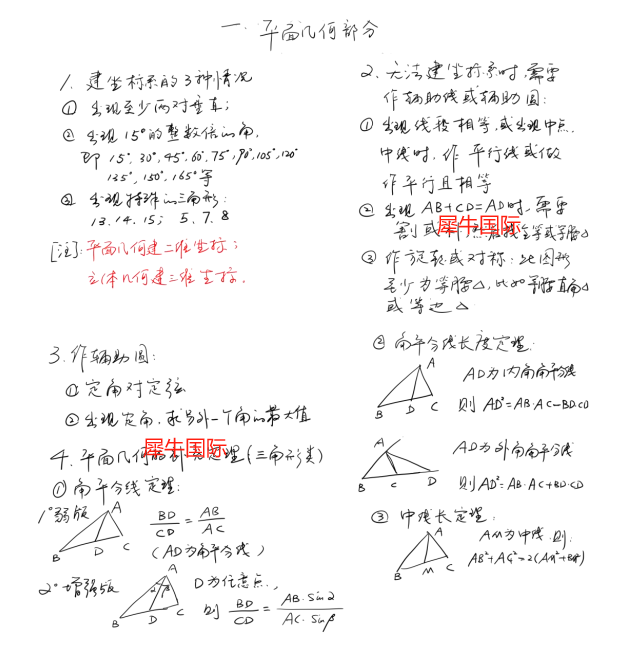 一. 平面几何部分
1. 建坐标系的3种情况
① 出现至少两对垂直;
② 出现15°的整数倍的角,
即 15°, 30°, 45°, 60°, 75°, 90°, 105°, 120°
135°, 150°, 165°等
③ 出现特殊的三角形:
13. 14. 15; 5. 7. 8
[注]: 平面几何建二维坐标;
立体几何建三维坐标.
2. 无法建坐标系时, 需要
作辅助线或辅助圆:
① 出现线段相等, 或出现中点
中线时, 作平行线或做
作平行且相等
② 出现 AB+CD=AD时, 需要
割或补
犀牛国际
③ 作旋转或对称: 此图形
至少为等腰△, 比如等腰直角△
或等边△
3. 作辅助圆:
① 定角对定弦
② 出现定角, 求另外一个角的最大值
4. 平面几何的
定理(三角形类)
犀牛国际
① 角平分线定理:
1° 弱版
A
B
D
C
BD/CD = AB/AC
(AD为角平分线)
2° 增强版
A
α
β
B
D
C
D为任意点,
则 BD/CD = AB·Sinα/AC·Sinβ
② 角平分线长度定理:
A
B
D
C
AD为内角角平分线
则 AD²=AB·AC-BD·CD
A
B
C
D
AD为外角角平分线
则 AD²=AB·AC+BD·CD
③ 中线长定理:
A
B
M
C
AM为中线, 则:
AB²+AC²=2(AM²+BM²)